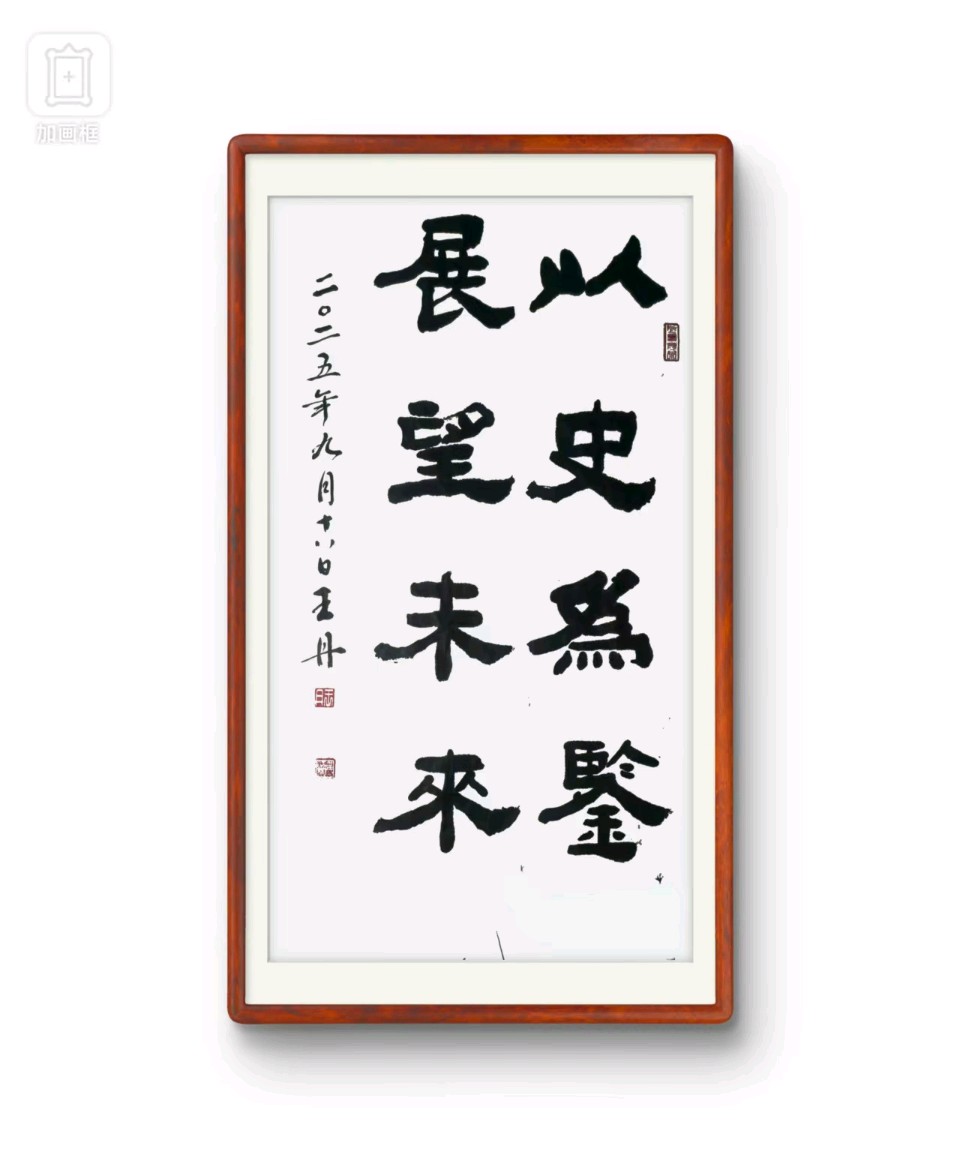 加画框
以史為鑒
展望未來
二〇二五年九月十八日王丹